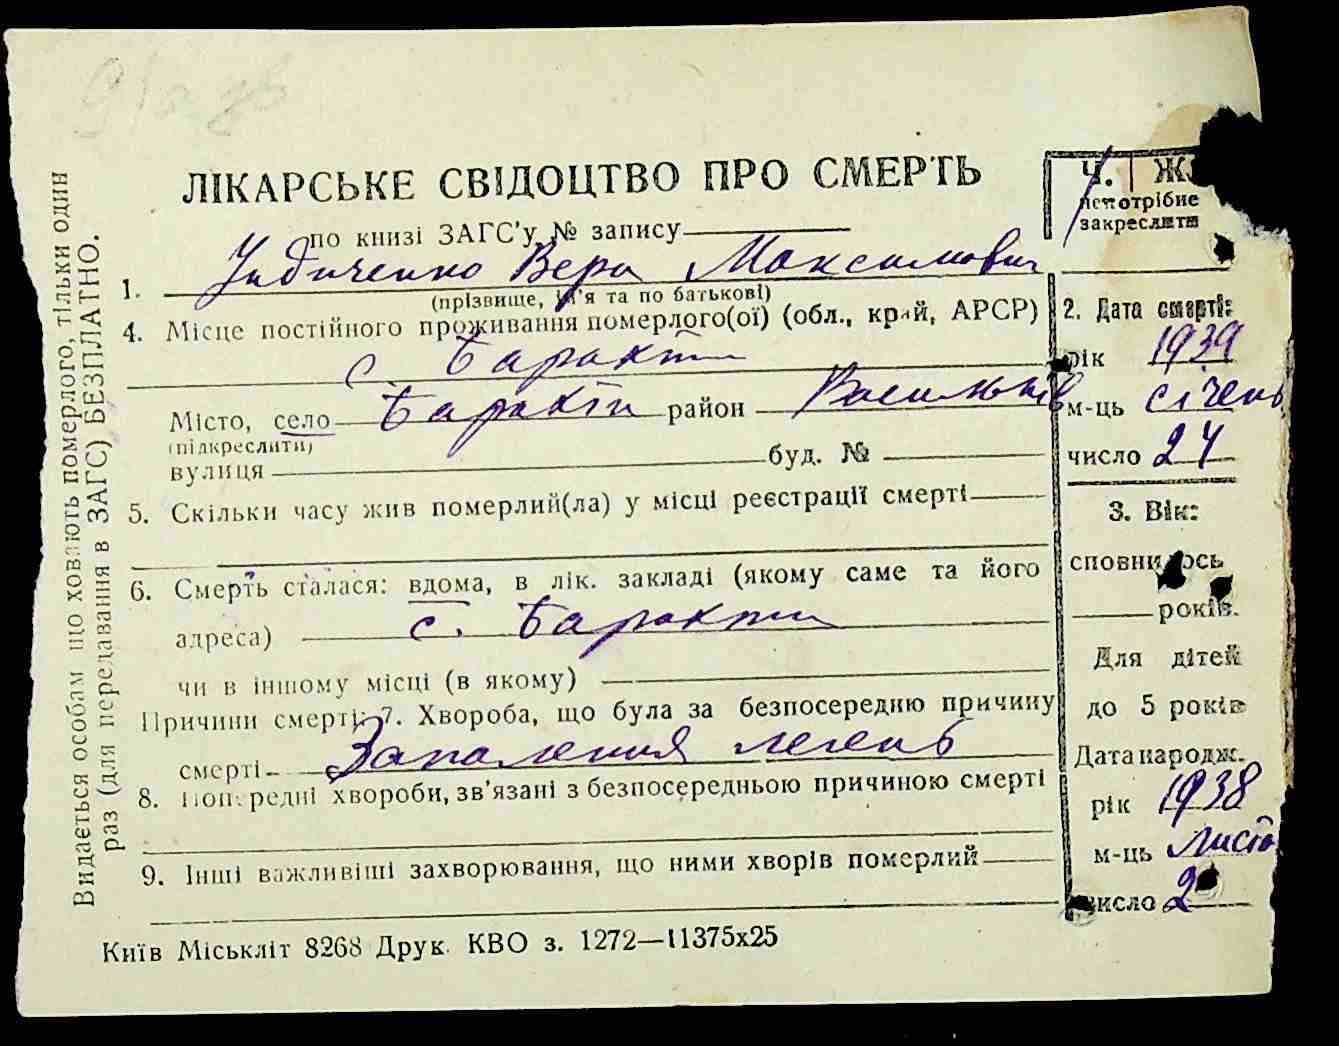 ЛІКАРСЬКЕ СВІДОЦТВО ПРО СМЕРТЬ
по книзі ЗАГС'у № запису
1. Вера Максимович
(прізвище, ім'я та по батькові)
4. Місце постійного проживання померлого(ої) (обл., край, АРСР)
с Барахти
Місто, село Барахти район Васильків
(підкреслити)
вулиця буд. №
5. Скільки часу жив померлий(ла) у місці реєстрації смерті
6. Смерть сталася: вдома, в лік. закладі (якому саме та його
адреса) с. Барахти
чи в іншому місці (в якому)
Причини смерті: 7. Хвороба, що була за безпосередню причину
смерті Запалення легень
8. Попередні хвороби, зв'язані з безпосередньою причиною смерті
9. Інші важливіші захворювання, що ними хворів померлий
Київ Міськліт 8268 Друк. КВО з. 1272—11375х25
Ч. Ж.
непотрібне
закреслити
2. Дата смерті:
рік 1939
м-ць січень
число 24
3. Вік:
сповнилось
років.
Для дітей
до 5 років
Дата народж.
рік 1938
м-ць листо
число 2
Видається особам що ховають померлого, тільки один
раз (для передавання в ЗАГС) БЕЗПЛАТНО.